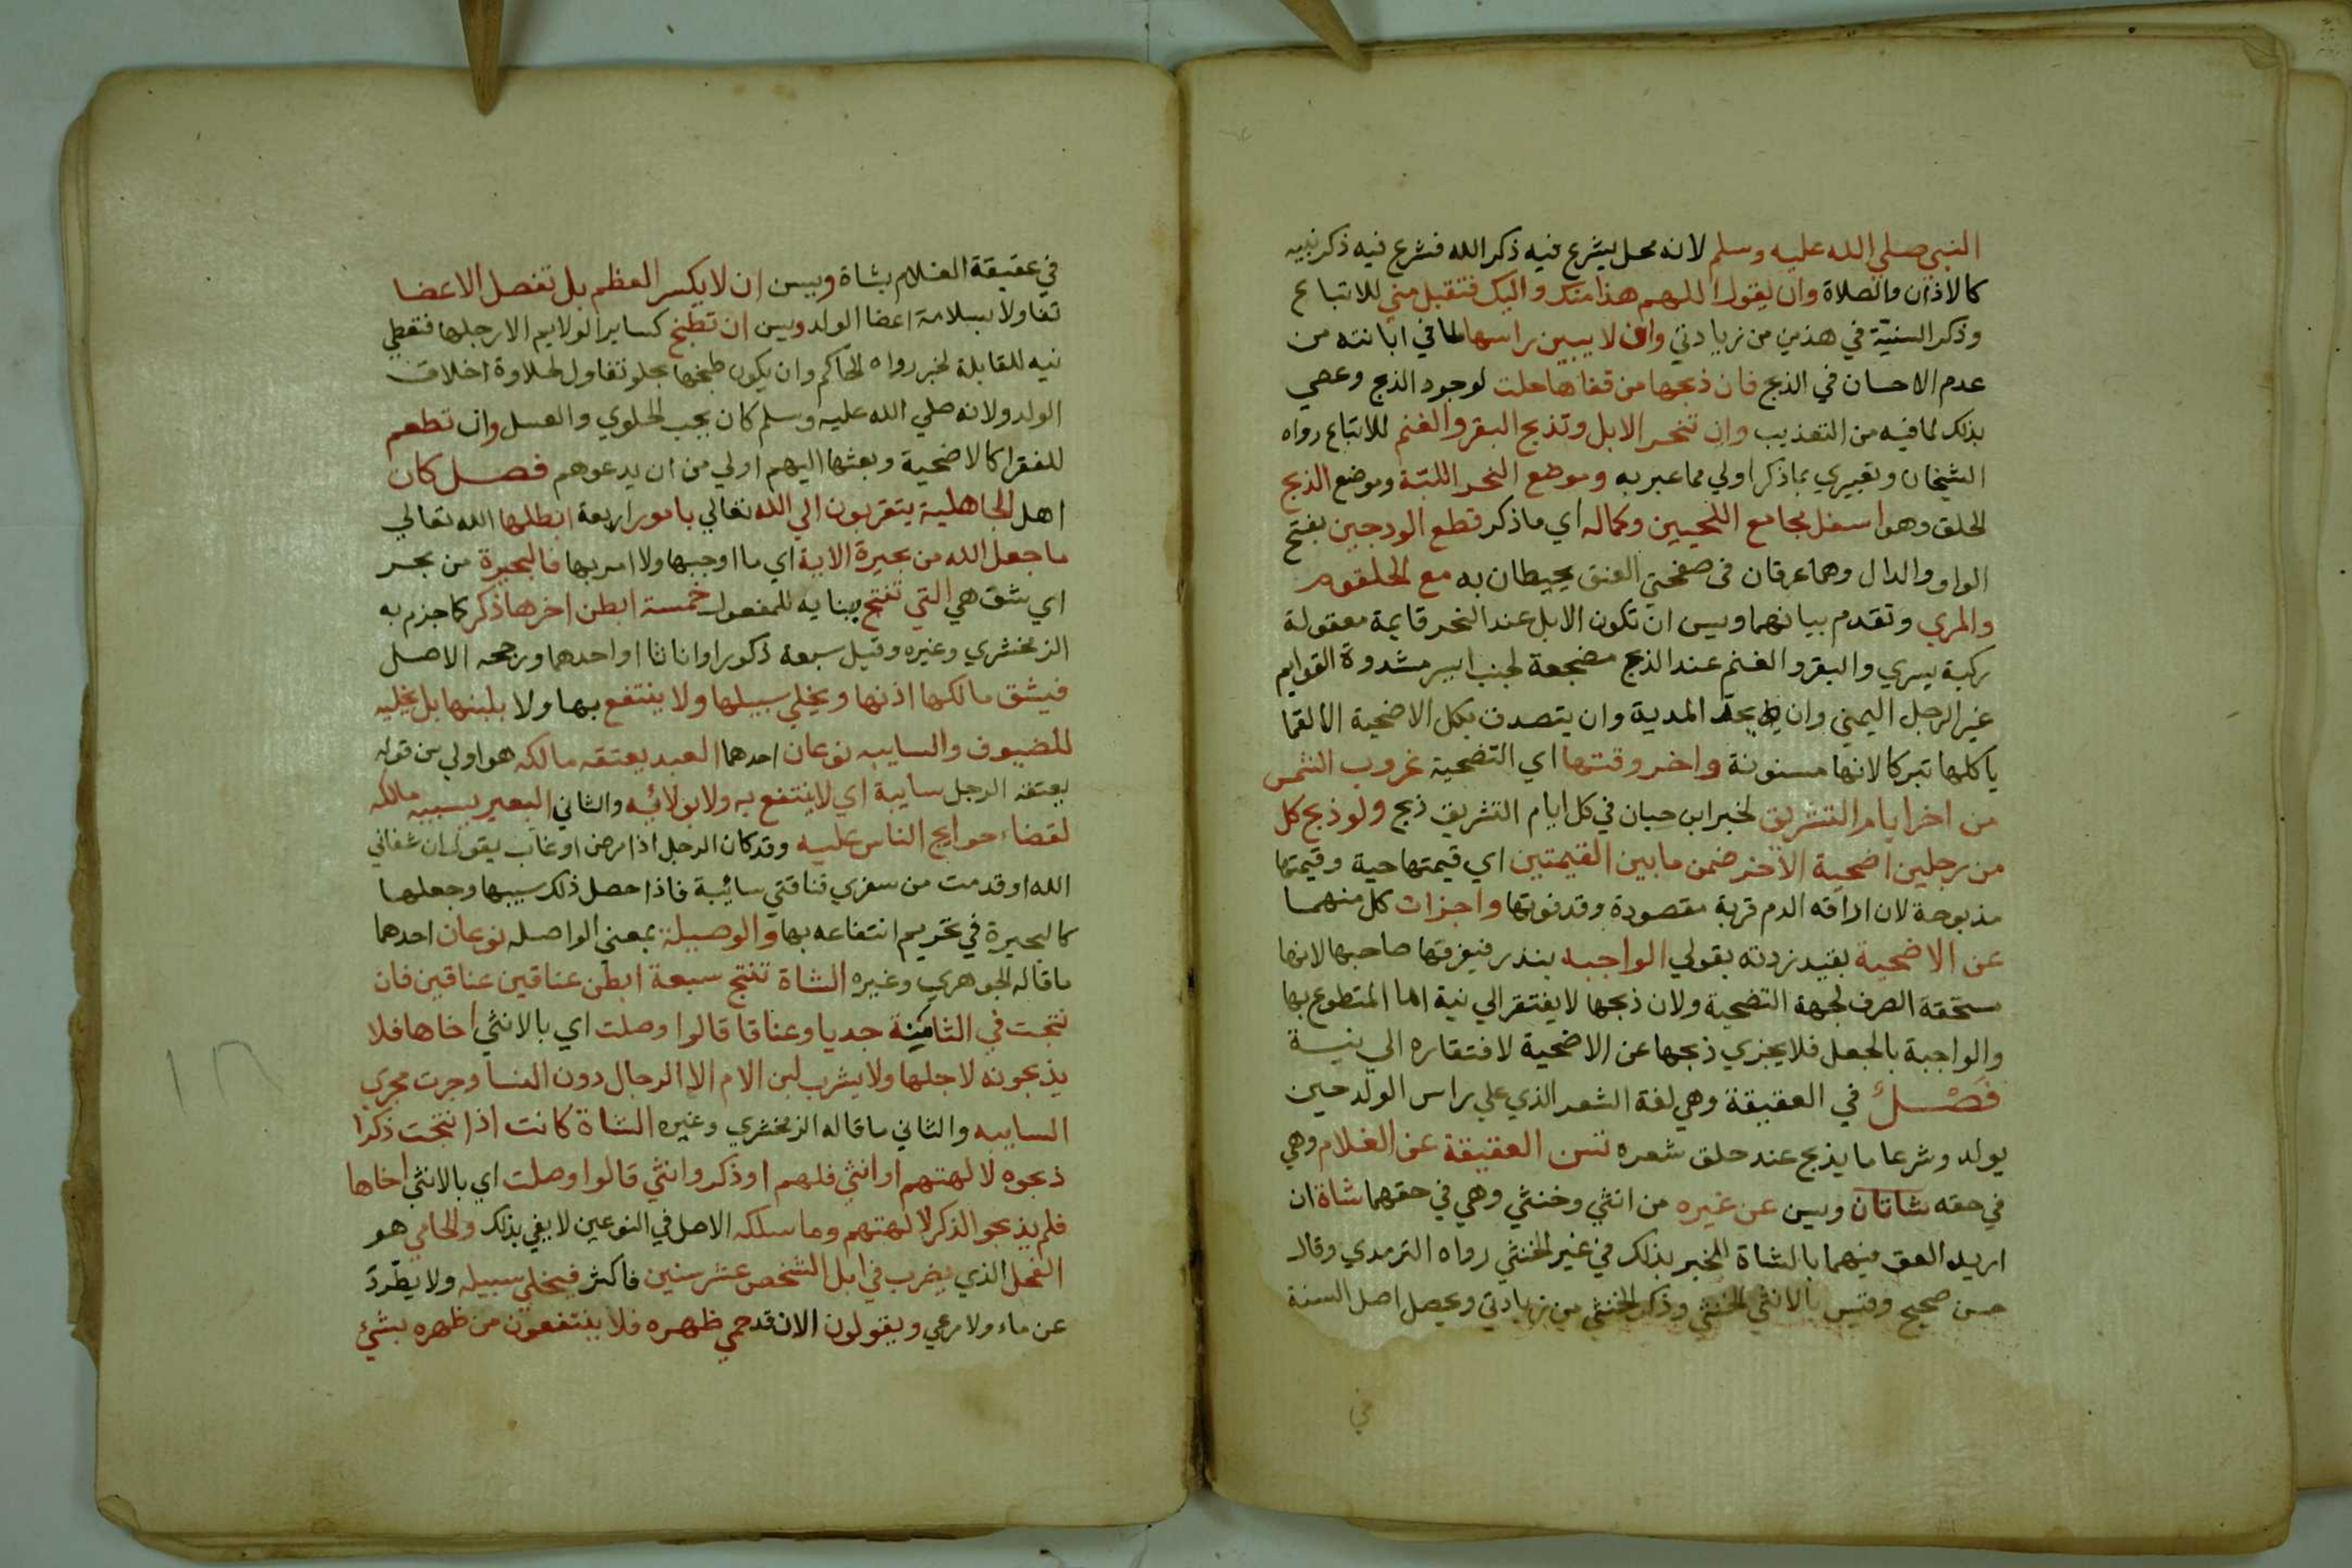 النبي صلي الله عليه وسلم لانه محل يشرع فيه ذكر الله فشرع فيه ذكر نبيه
كالاذان والصلاة وان يقول اللهم هذا منك واليك فتقبل مني للاتباع
وذكر السنية في هذين من زيادتي وان لا يبين راسها لما في ابانته من
عدم الاحسان في الذبح فان ذبحها من قفاها حلت لوجود الذبح وعصي
بذلك لما فيه من التعذيب وان تنحر الابل وتذبح البقر والغنم للاتباع رواه
الشيخان وتعبيري بما ذكر اولي مما عبر به وموضع النحر اللبة وموضع الذبح
الحلق وهو اسفل مجامع اللحيين وكماله اي ما ذكر قطع الودجين بفتح
الواو والدال وهما عرقان في صفحتي العنق يحيطان به مع الحلقوم
والمري وتقدم بيانهما ويسن ان تكون الابل عند النحر قايمة معقولة
ركبة يسري والبقر والغنم عند الذبح مضجعة لجنب ايسر مشدودة القوايم
غير الرجل اليمني وان يحد المدية وان يتصدق بكل الاضحية الا لقما
ياكلها تبركا لانها مسنونة واخر وقتها اي التضحية غروب الشمس
من اخر ايام التشريق لخبر ابن حبان في كل ايام التشريق ذبح ولو ذبح كل
من رجلين اضحية الاخر ضمن ما بين القيمتين اي قيمتها حية وقيمتها
مذبوحة لان اراقه الدم قربة مقصودة وقد فوتها واجزات كل منهما
عن الاضحية بقيد زدته بقولي الواجبه بنذر فيفرقها صاحبها لانها
مستحقة الصرف لجهة التضحية ولان ذبحها لا يفتقر الي نية اما المتطوع بها
والواجبة بالجعل فلا يجزي ذبحها عن الاضحية لافتقاره الي نية
فصل في العقيقة وهي لغة الشعر الذي علي راس الولد حين
يولد وشرعا ما يذبح عند حلق شعره تسن العقيقة عن الغلام وهي
في حقه شاتان ويسن عن غيره من انثي وخنثي وهي في حقهما شاة ان
اريد العق عنهما بالشاة للخبر بذلك في غير الخنثي رواه الترمذي وقال
حسن صحيح وقيس بالانثي الخنثي وذكر الخنثي من زيادتي ويحصل اصل السنة
في
في عقيقة الغلام بشاة ويسن ان لا يكسر العظم بل تفصل الاعضا
تفاولا بسلامة اعضا الولد ويسن ان تطبخ كساير الولايم الا رجلها فتعطي
نيه للقابلة لخبر رواه الحاكم وان يكون طبخها بحلو تفاول لحلاوة اخلاق
الولد ولانه صلي الله عليه وسلم كان يحب الحلوي والعسل وان تطعم
للفقرا كالاضحية وبعثها اليهم اولي من ان يدعوهم فصل كان
اهل الجاهلية يتقربون الي الله تعالي بامور اربعة ابطلها الله تعالي
ما جعل الله من بحيرة الاية اي ما اوجبها ولا امر بها فالبحيرة من بحر
اي شق هي التي تنتج ببنايه للمفعول خمسة ابطن اخرها ذكر كما جزم به
الزمخشري وغيره وقيل سبعة ذكورا او اناثا او احدهما ورجحه الاصل
فيشق مالكها اذنها ويخلي سبيلها ولا ينتفع بها ولا بلبنها بل يخليه
للضيوف والسايبه نوعان احدهما العبد يعتقه مالكه هو اولي من قوله
يعتقه الرجل سايبة اي لا ينتفع به ولا بولائه والثاني البعير يسيبه مالكه
لقضاء حوايج الناس عليه وقد كان الرجل اذا مرض او غاب يقول ان شفاني
الله او قدمت من سفري فناقتي سائبة فاذا حصل ذلك سيبها وجعلها
كالبحيرة في تحريم انتفاعه بها والوصيلة بمعني الواصله نوعان احدهما
ما قاله الجوهري وغيره الشاة تنتج سبعة ابطن عناقين عناقين فان
نتجت في الثامنة جديا وعناقا قالوا وصلت اي بالانثي اخاها فلا
يذبحونه لاجلها ولا يشرب لبن الام الا الرجال دون النسا وجرت مجري
السايبه والثاني ما قاله الزمخشري وغيره الشاة كانت اذا نتجت ذكرا
ذبحوه لالهتهم او انثي فلهم او ذكر وانثي قالوا وصلت اي بالانثي اخاها
فلم يذبحو الذكر لالهتهم وما سلكه الاصل في النوعين لا يفي بذلك والحامي هو
الفحل الذي يضرب في ابل الشخص عشر سنين فاكثر فيخلي سبيله ولا يطرد
عن ماء ولا مرعي ويقولون الان قد حمي ظهره فلا ينتفعون من ظهره بشئ